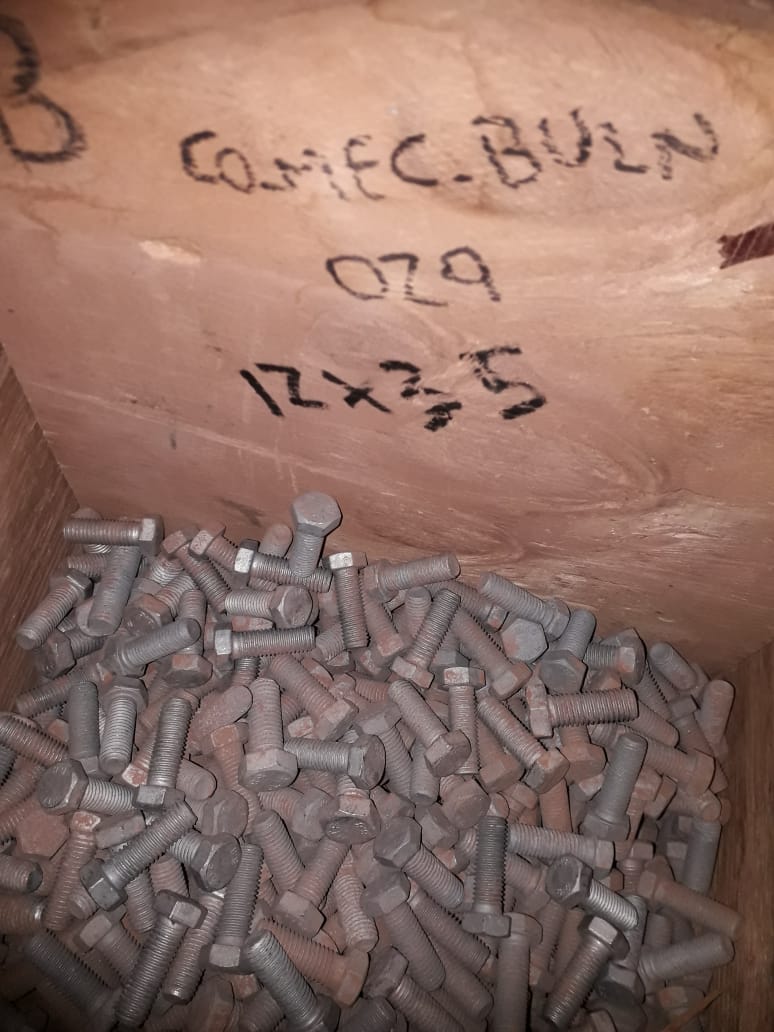 B
CO.MEC.BULN
029
12x35